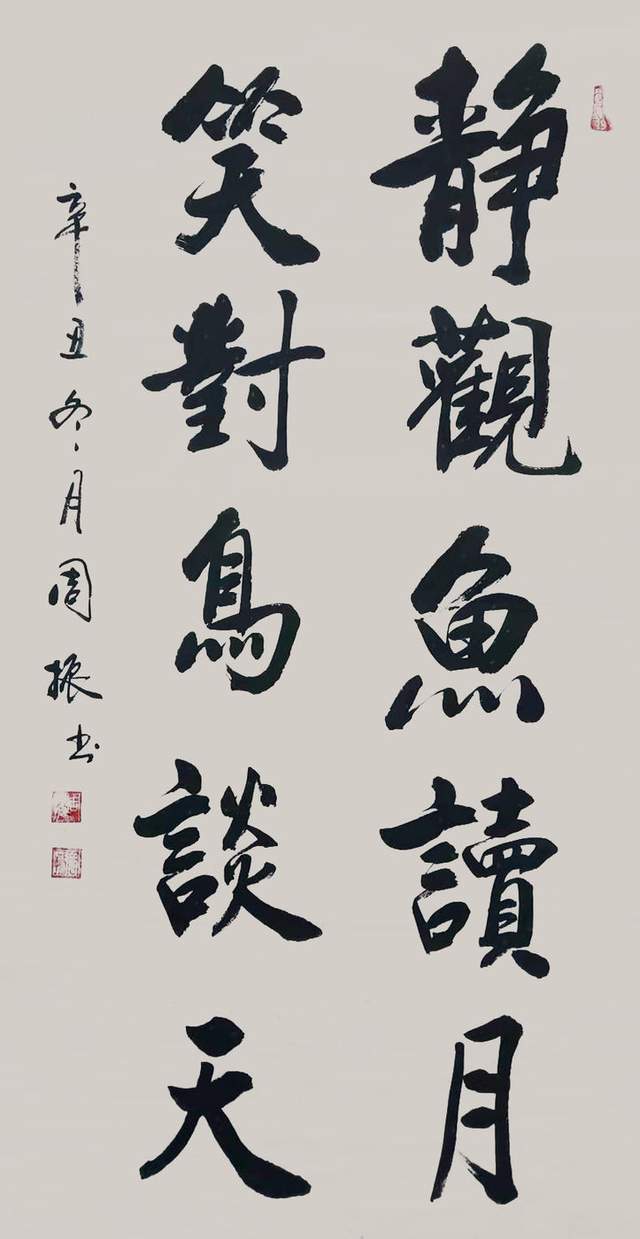 靜觀魚讀月
笑對鳥談天
辛丑冬月周振书